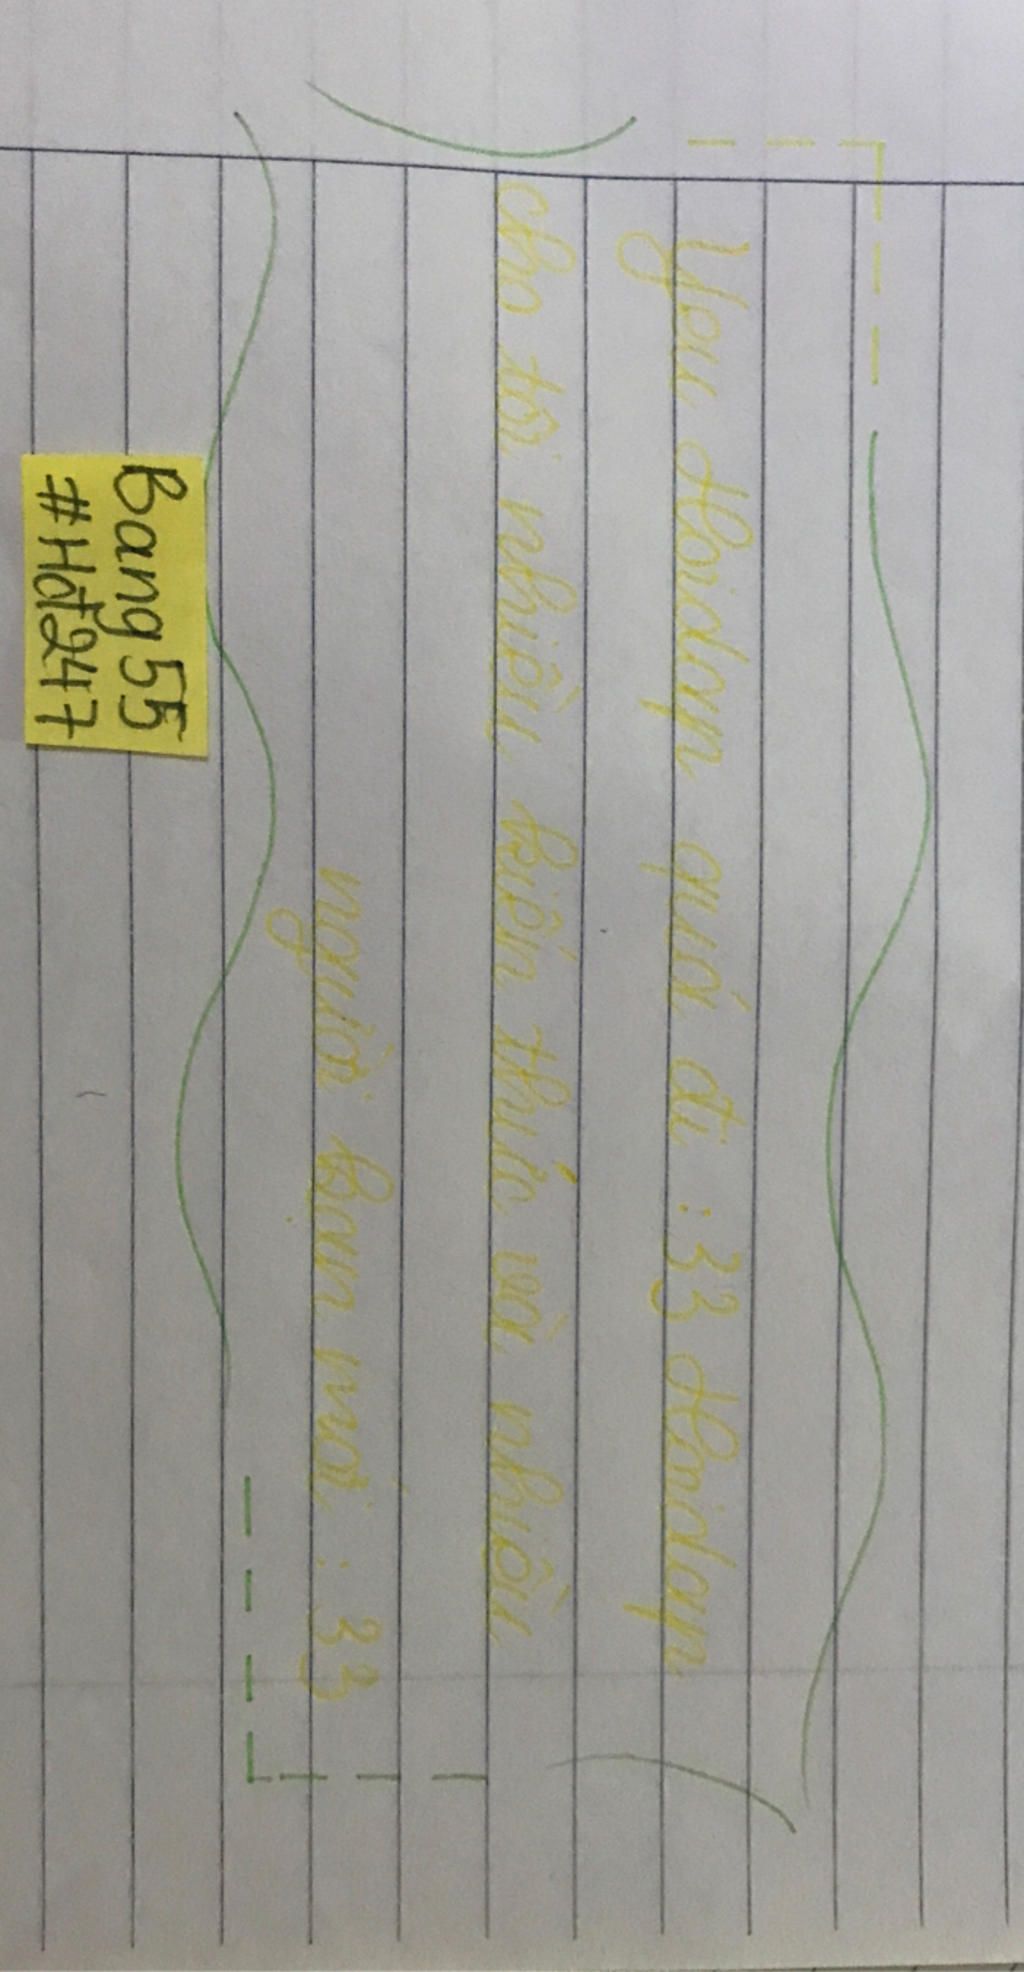 Yêu Hoidap quá đi :33 Hoidap
cho tôi nhiều kiến thức và nhiều
người bạn mới :33
Bang55
#Hđ247